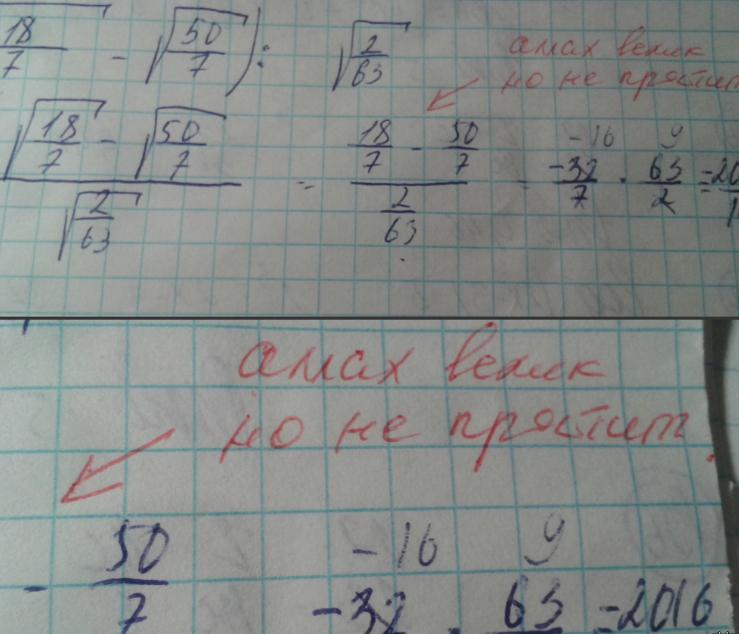 √18/7 - √50/7) : √2/63
амах велик
но не простит
(√18/7 - √50/7)/√2/63 = (18/7 - 50/7)/(2/63) = -32/7 · 63/2 = -20
-16 9
амах велик
но не простит.
-16 9
- 50/7 -32 · 63 = -2016